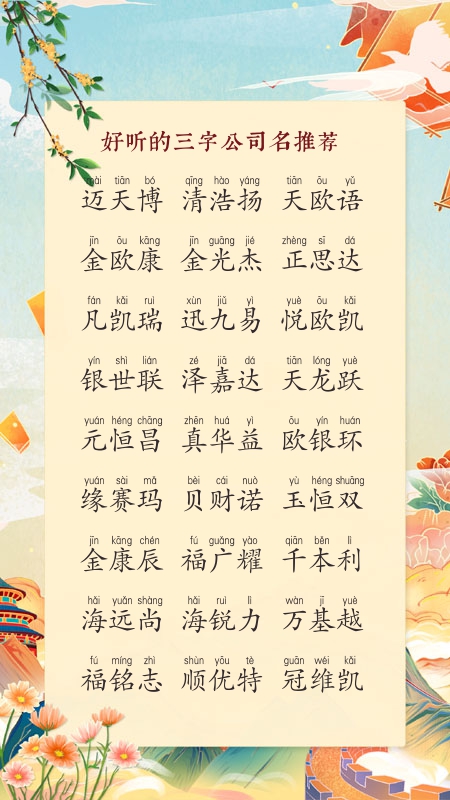 好听的三字公司名推荐
mài tiān bó qīng hào yáng tiān ōu yǔ
迈天博 清浩扬 天欧语
jīn ōu kāng jīn guāng jié zhèng sī dá
金欧康 金光杰 正思达
fán kǎi ruì xùn jiǔ yì yuè ōu kǎi
凡凯瑞 迅九易 悦欧凯
yín shì lián zé jiā dá tiān lóng yuè
银世联 泽嘉达 天龙跃
yuán héng chāng zhēn huá yì ōu yín huán
元恒昌 真华益 欧银环
yuán sài mǎ bèi cái nuò yù héng shuāng
缘赛玛 贝财诺 玉恒双
jīn kāng chén fú guǎng yào qiān běn lì
金康辰 福广耀 千本利
hǎi yuǎn shàng hǎi ruì lì wàn jī yuè
海远尚 海锐力 万基越
fú míng zhì shùn yōu tè guān wéi kǎi
福铭志 顺优特 冠维凯